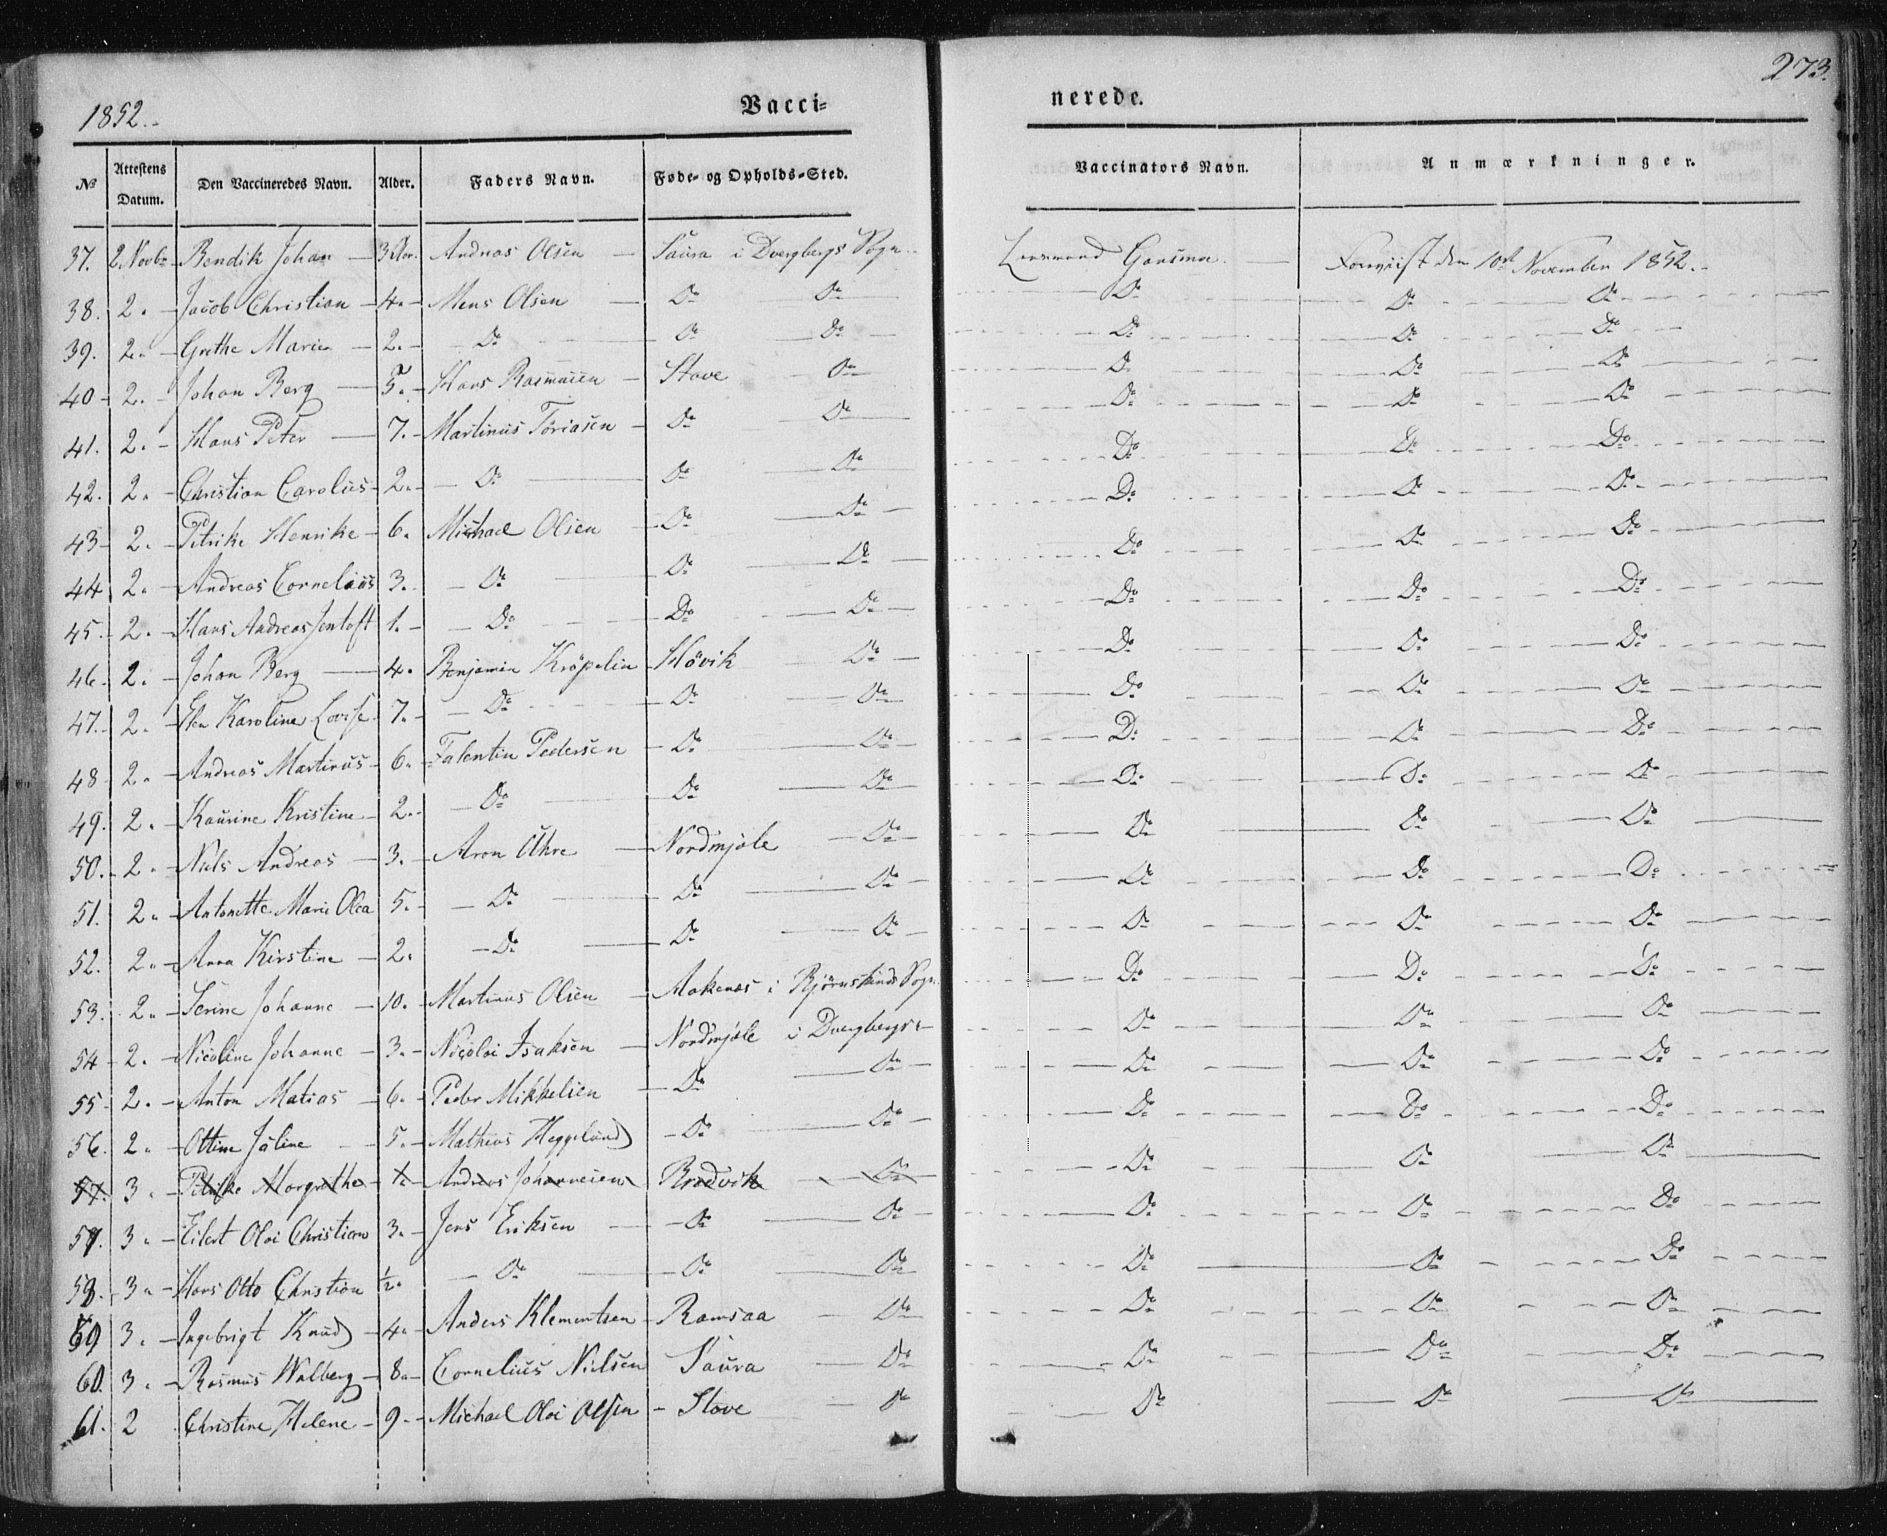 1852.
Vacci=
nerede.
273.
№ Attestens Datum. Den Vaccineredes Navn. Alder. Faders Navn. Føde- og Opholds-Sted. Vaccinators Navn. Anmærkninger.
37. 2 Novbr Bendik Johan 3 Andreas Olsen Saura i Dvergbergs Sogn Lensmand den 10de November 1852.
38. 2. Jacob Christian 4. Mens Olsen Do Do Do Do Do
39. 2. Grethe Marie 2. Do Do Do Do Do Do
40 2. Johan Berg 5. Hans Rasmusen Stave Do Do Do Do
41. 2. Hans Peter 7. Martinus Toriasen Do Do Do Do Do
42. 2. Christian Carolus 2. Do Do Do Do Do Do
43 2. Petrike Henrike 6. Michael Olsen Do Do Do Do Do
44. 2. Andreas Cornelius 3. Do Do Do Do Do Do
45. 2. Hans Andreas Jentoft 1. Do Do Do Do Do Do
46. 2. Johan Berg 4. Benjamin Kröpelin Høvik Do Do Do Do
47. 2. Elen Karoline Lovise 7. Do Do Do Do Do Do
48 2. Andreas Martinus 6. Falentin Pedersen Do Do Do Do Do
49. 2. Kaurine Kristine 2. Do Do Do Do Do Do
50. 2. Niels Andreas 3. Aron Åhre Nordmjele Do Do Do Do
51. 2. Antonette Marie Olea 5. Do Do Do Do Do Do
52. 2. Anna Kirstine 2. Do Do Do Do Do Do
53. 2. Serine Johanne 10. Martinus Olsen Aakenæs i Bjørnskinds Sogn Do Do Do
54 2. Nicoline Johanne 3. Nicolai Isaksen Nordmjele i Dvergbergs Do Do Do
55 2. Anton Matias 6. Peder Mikkelsen Do Do Do Do Do
56. 2. Ottine Jåline 5. Mathias Heggelund Do Do Do Do Do
57. 3. Petrike Margrethe Andreas Johannesen Brædvik Do Do Do Do
57. 3. Eilert Oloi Christian 3. Jens Eriksen Do Do Do Do Do
58. 3. Hans Otto Christian ½. Do Do Do Do Do Do
59 3. Ingebrigt Knud 4. Anders Klementsen Ramsaa Do Do Do Do
60. 3. Rasmus Walberg 8. Cornelius Nielsen Saura Do Do Do Do
61. 2 Christine Helene 9. Michael Oloi Olsen Stave Do Do Do Do